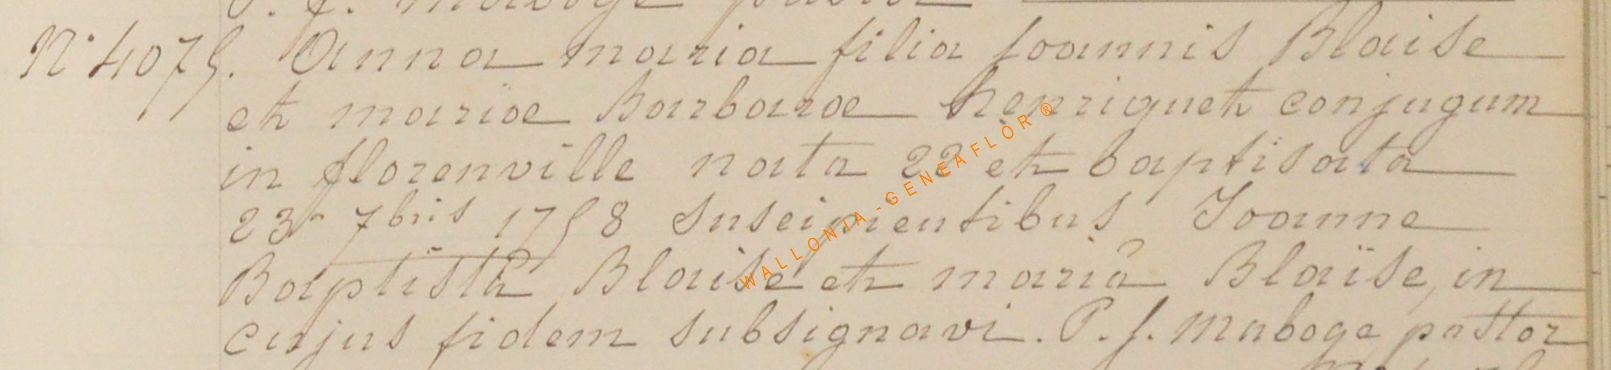 N° 4075. Anna maria filia Joannis Blaise
et mariae Barbarae henriquet conjugum
in florenville nata 22 et baptisata
23a 7bris 1758 suscipientibus Joanne
Baptistâ Blaise et mariâ Blaise, in
cujus fidem subsignavi. P. J. Maboge pastor
WALLONIA-GENEAFLOR®